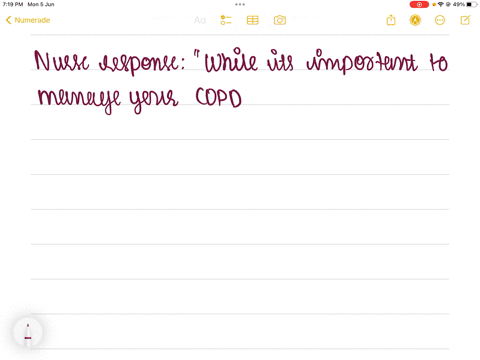 7:19 PM Mon 5 Jun
49%
Numerade
Aa
Nurse response: "While its important to
manage your COPD